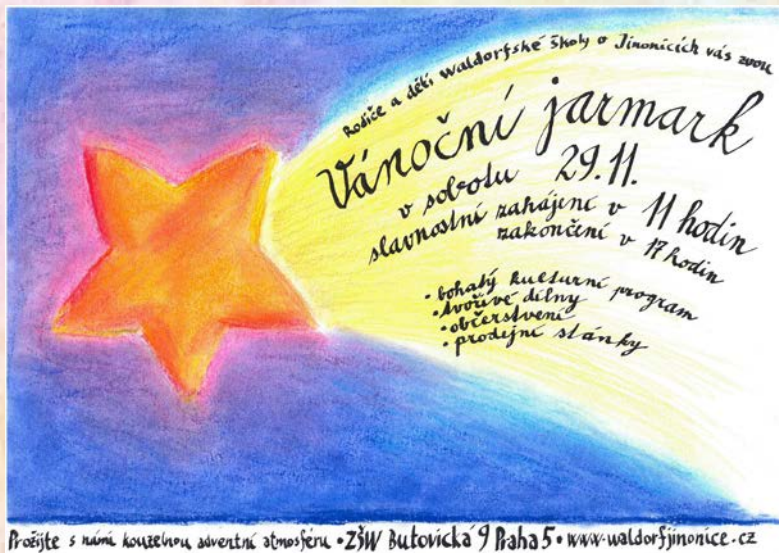 Rodiče a děti Waldorfské školy v Jinonicích vás zvou
Vánoční jarmark
v sobotu 29.11.
slavnostní zahájení v 11 hodin
zakončení v 17 hodin
• bohatý kulturní program
• tvořivé dílny
• občerstvení
• prodejní stánky
Prožijte s námi kouzelnou adventní atmosféru • ZŠW Butovická 9 Praha 5 • www.waldorfjinonice.cz